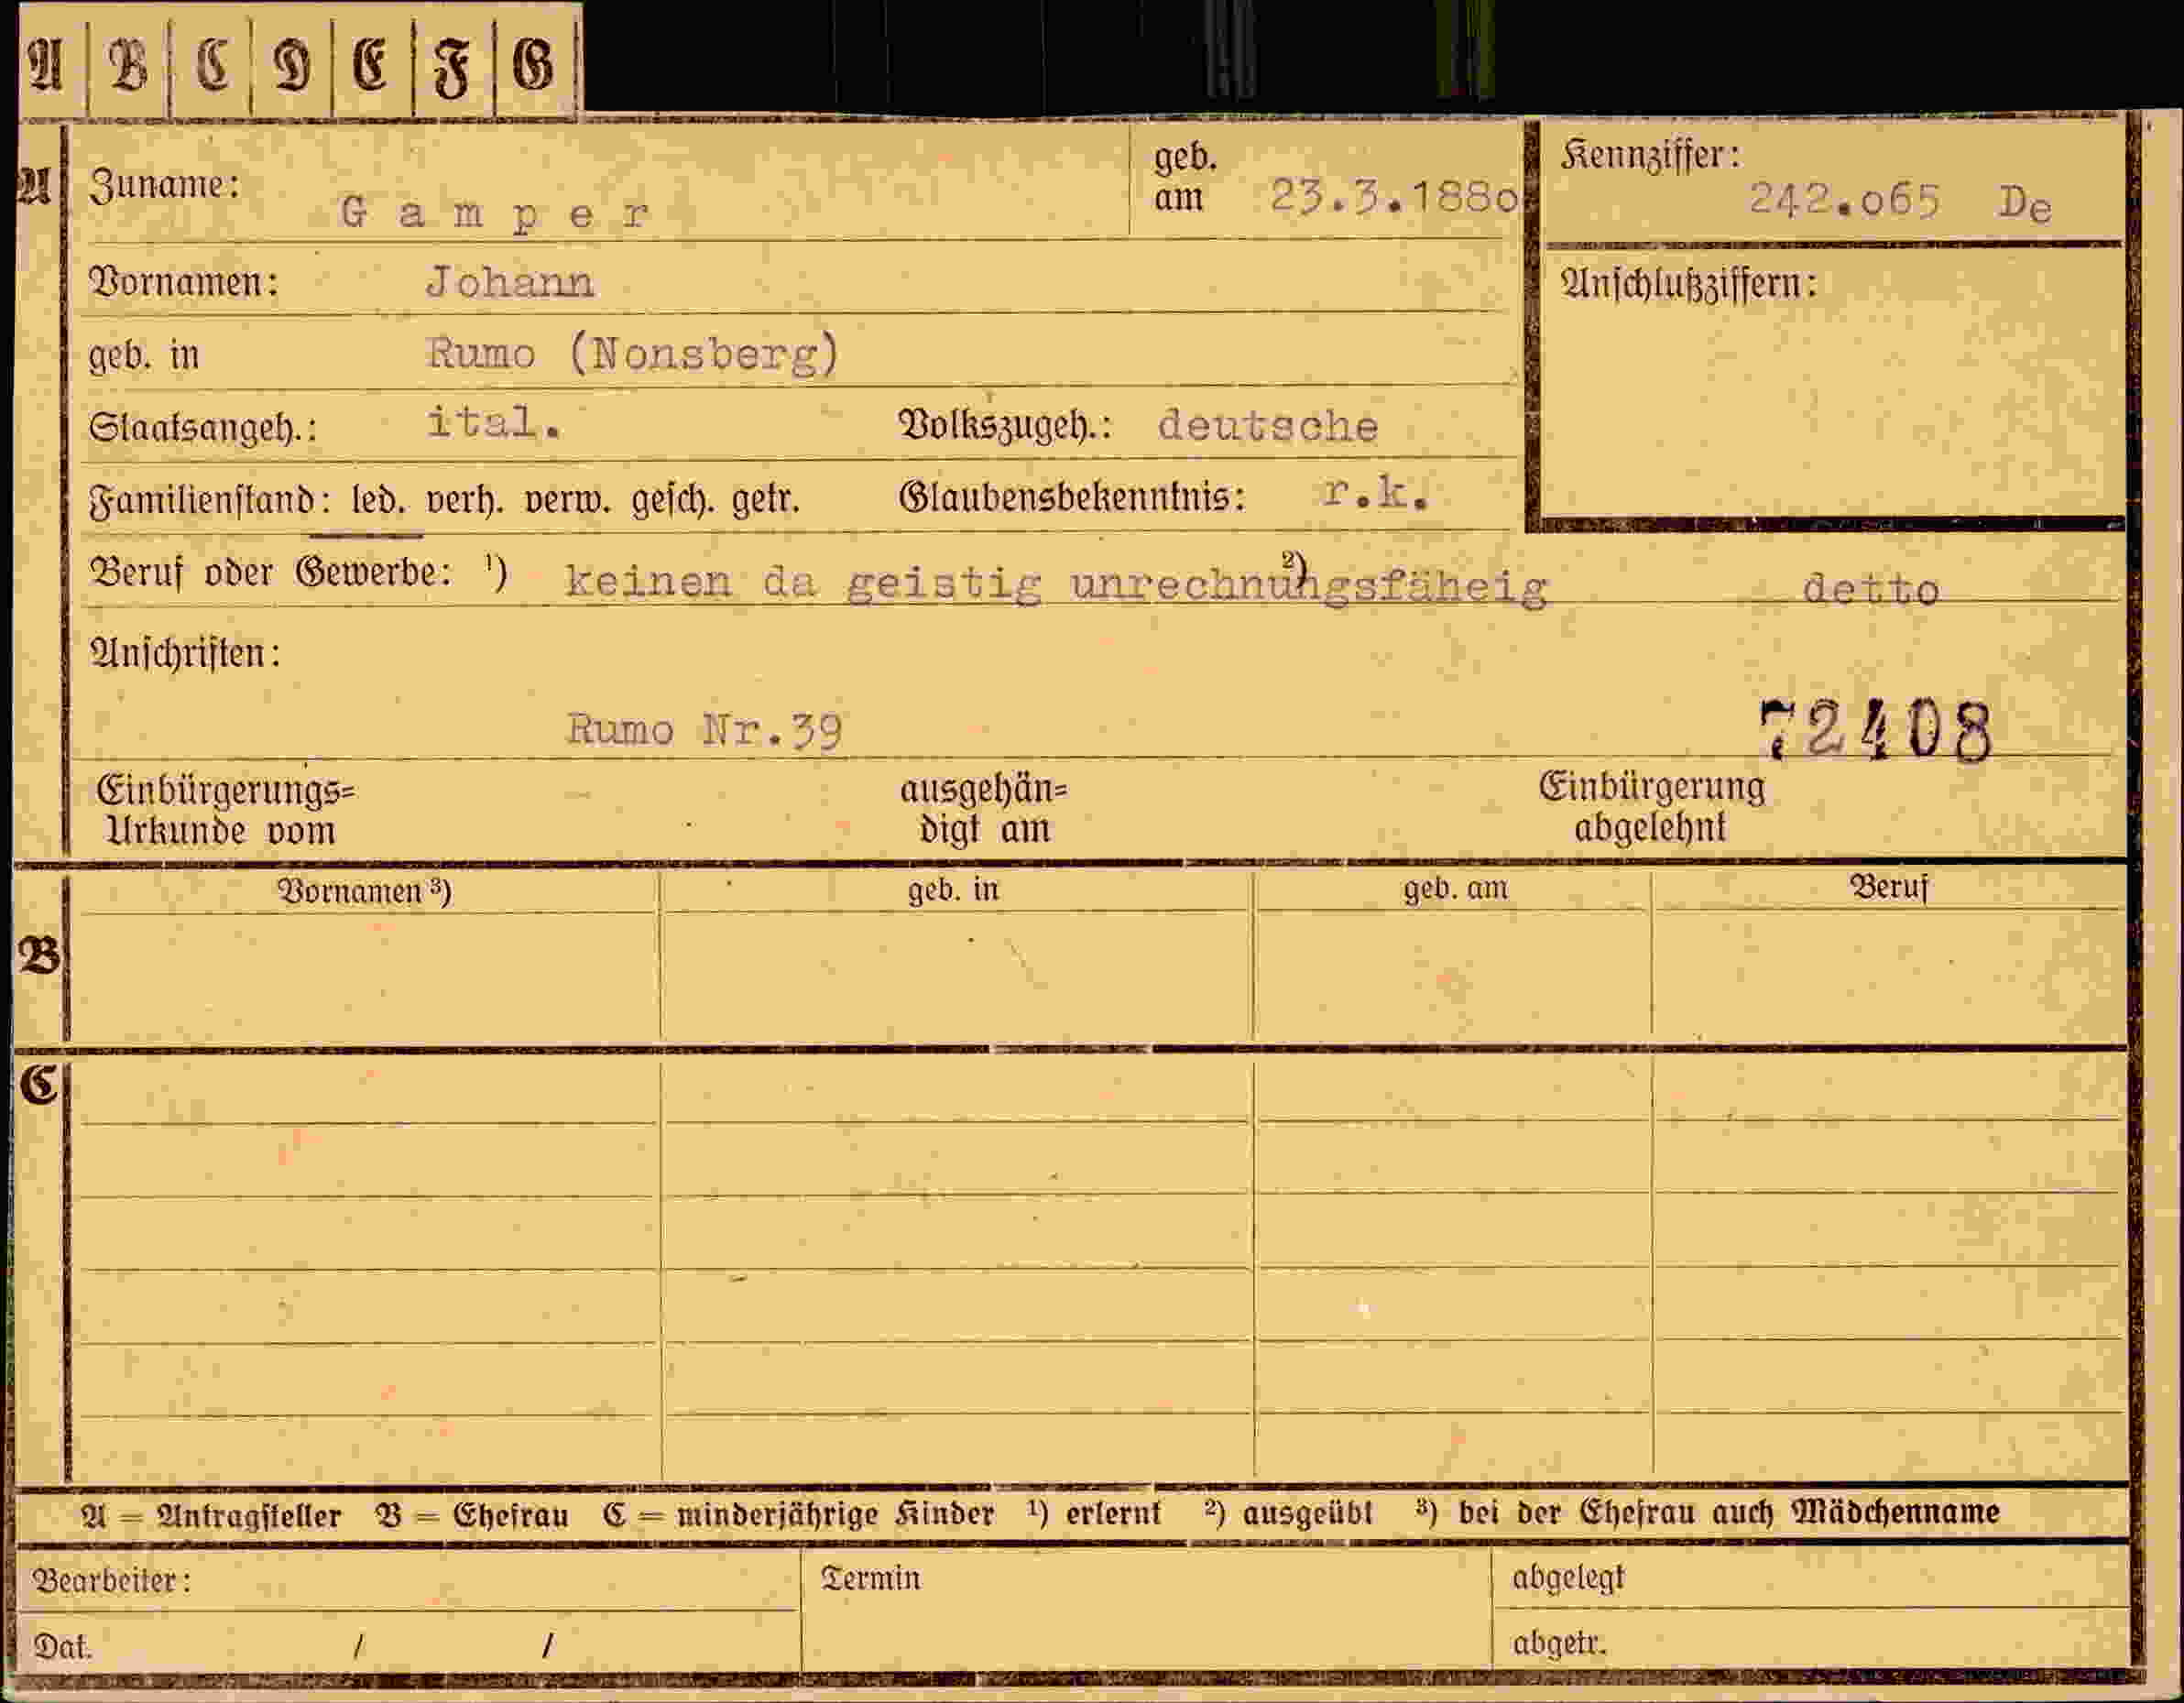 A B C D E F G
A Zuname: Gamper geb. am 23.3.188o Kennziffer: 242.o65 De
Vornamen: Johann Anschlußziffern:
geb. in Rumo (Nonsberg)
Staatsangeh.: ital. Volkszugeh.: deutsche
Familienstand: led. verh. verw. gesch. getr. Glaubensbekenntnis: r.k.
Beruf oder Gewerbe: ¹) keinen da geistig unrechnungsfäheig ²) detto
Anschriften:
Rumo Nr.39 72408
Einbürgerungs= ausgehän= Einbürgerung
Urkunde vom digt am abgelehnt
Vornamen ³) geb. in geb. am Beruf
B
C
A = Antragsteller B = Ehefrau C = minderjährige Kinder ¹) erlernt ²) ausgeübt ³) bei der Ehefrau auch Mädchenname
Bearbeiter: Termin abgelegt
Dat. / / abgetr.